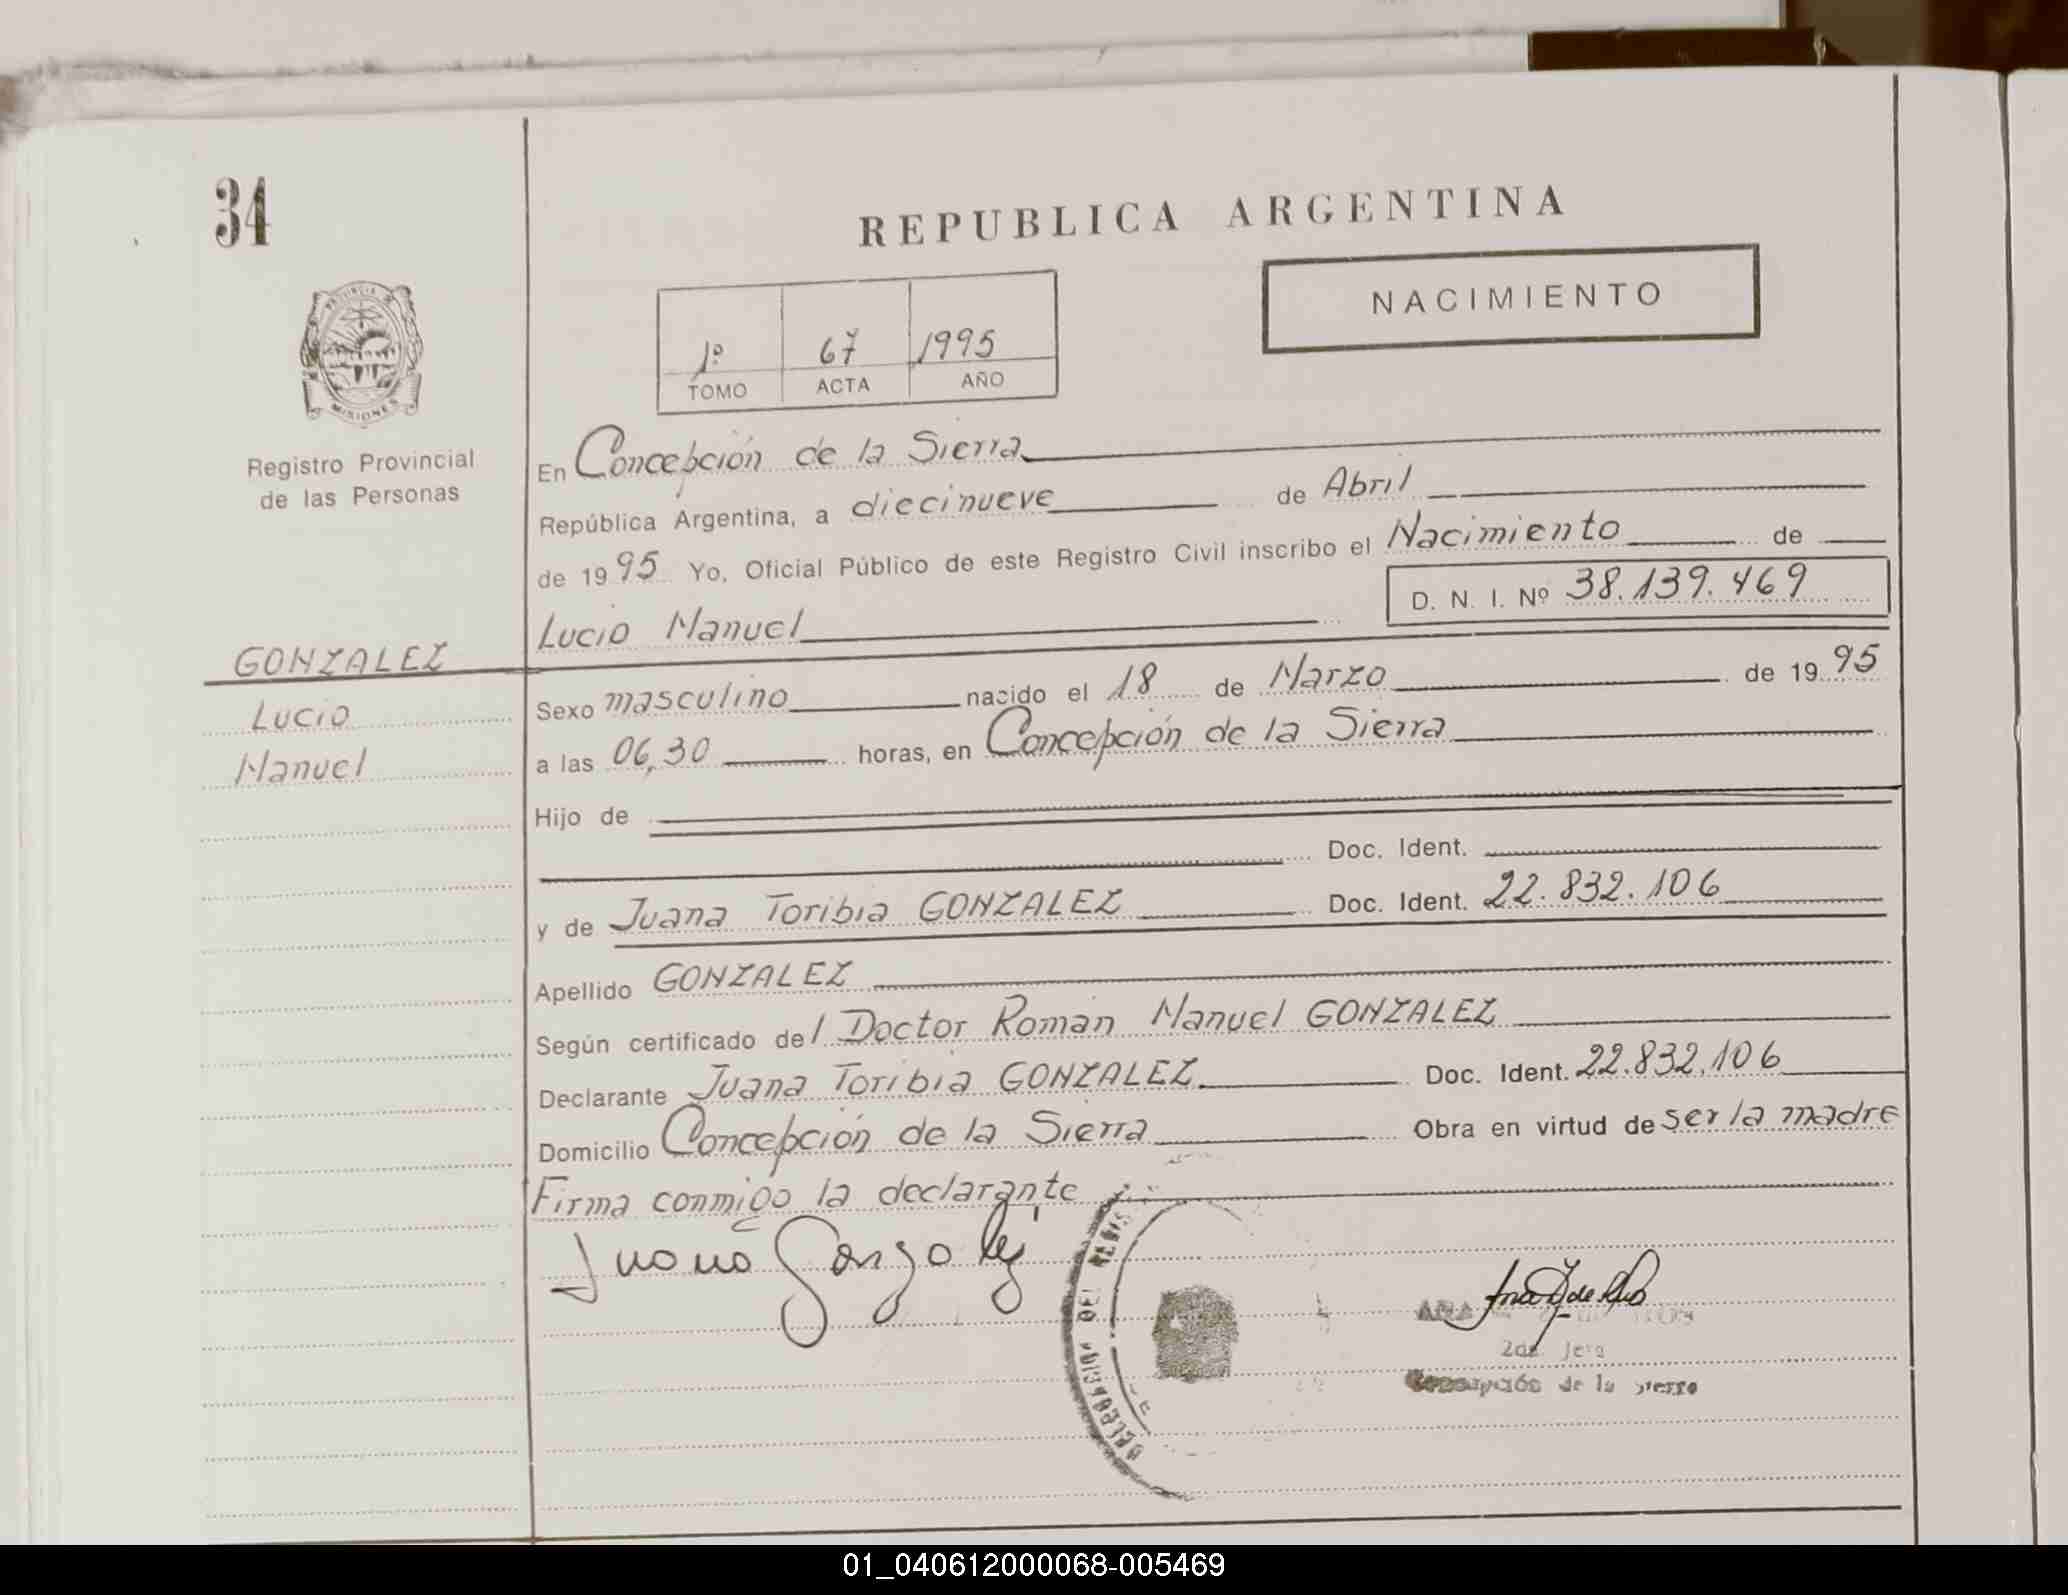 34
REPUBLICA ARGENTINA
NACIMIENTO
1º 67 1995
TOMO ACTA AÑO
PROVINCIA DE
MISIONES
Registro Provincial
de las Personas
GONZALEZ
Lucio
Manuel
En Concepción de la Sierra
República Argentina, a diecinueve de Abril
de 1995 Yo, Oficial Público de este Registro Civil inscribo el Nacimiento de
D. N. I. Nº 38.139.469
Lucio Manuel
Sexo masculino nacido el 18 de Marzo de 1995
a las 06,30 horas, en Concepción de la Sierra
Hijo de
Doc. Ident.
y de Juana Toribia GONZALEZ Doc. Ident. 22.832.106
Apellido GONZALEZ
Según certificado del Doctor Roman Manuel GONZALEZ
Declarante Juana Toribia GONZALEZ Doc. Ident. 22.832.106
Domicilio Concepción de la Sierra Obra en virtud de ser la madre
Firma conmigo la declarante
Juana Gonzalez
DELEGACION DEL REGIS
ANA
2da Jefa
Concepción de la Sierra
01_040612000068-005469